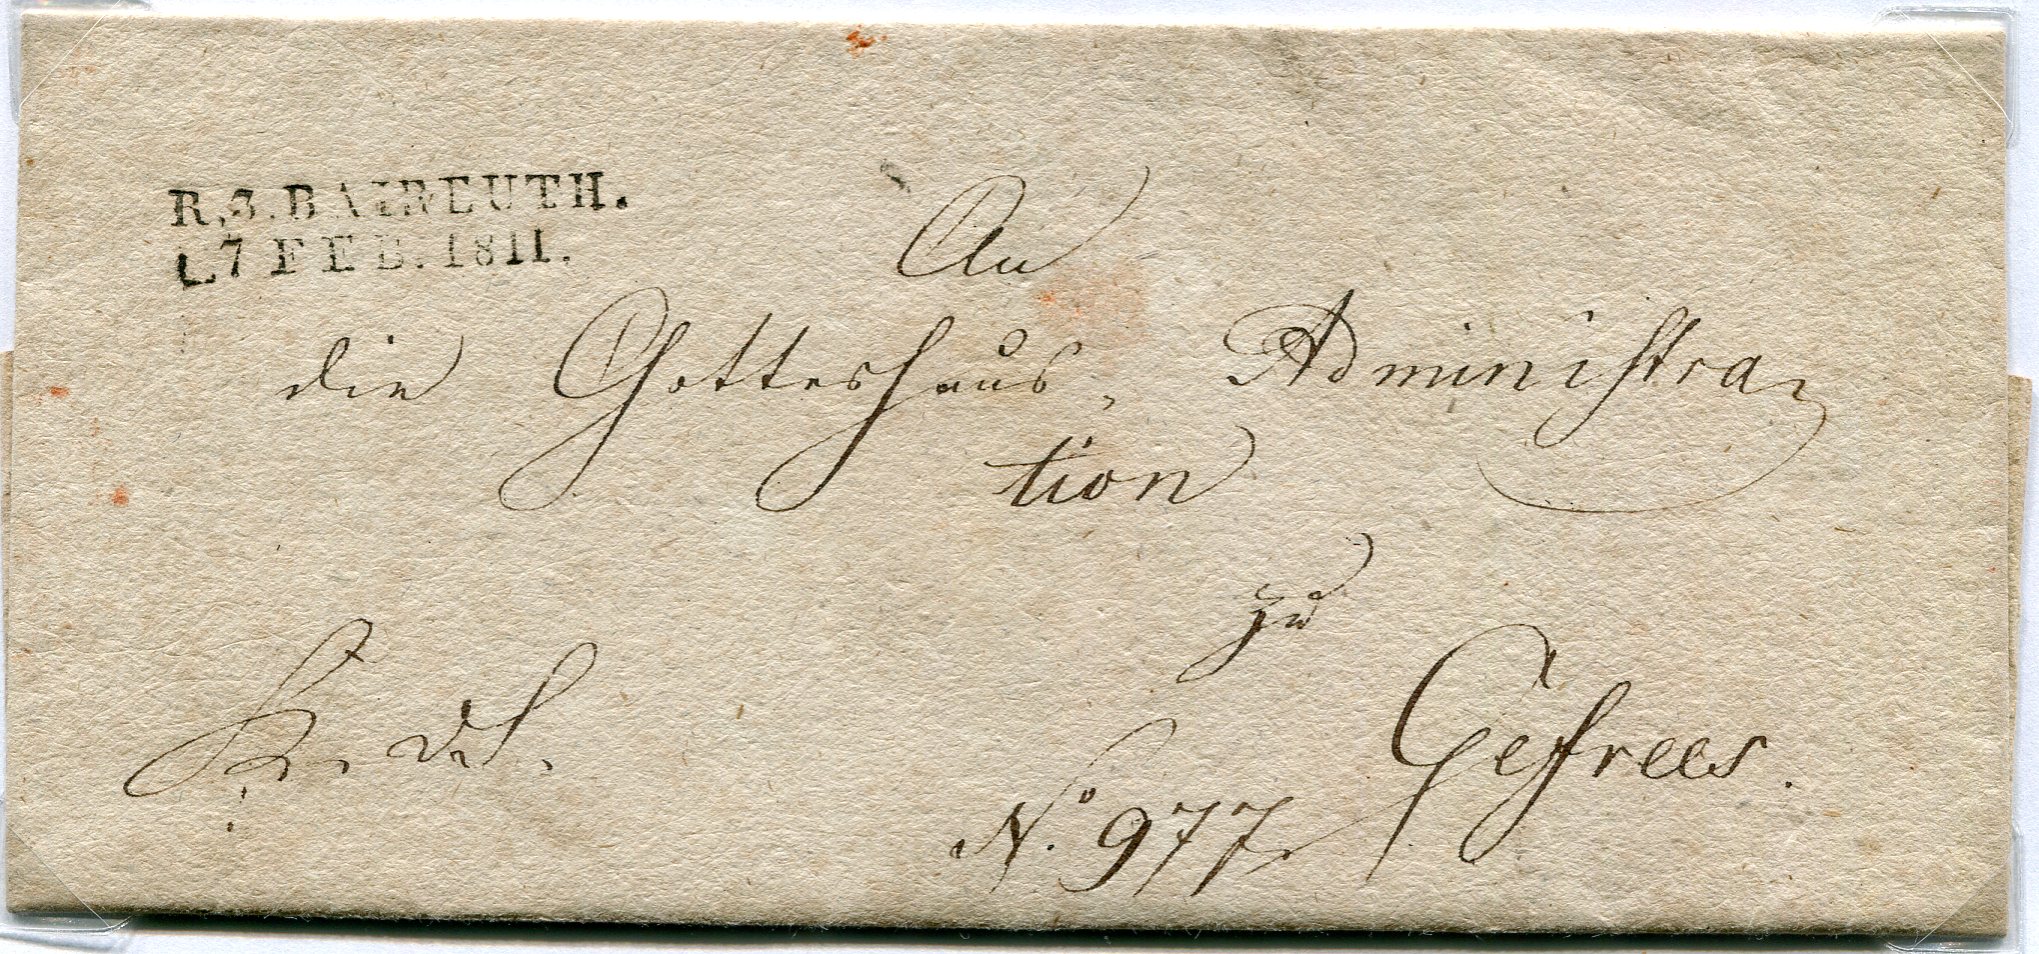 R.3.BAIREUTH.
7 FEB. 1811.
An
die Gotteshaus, Administra,
tion
zu
Gefrees.
K. d. S.
No. 977.